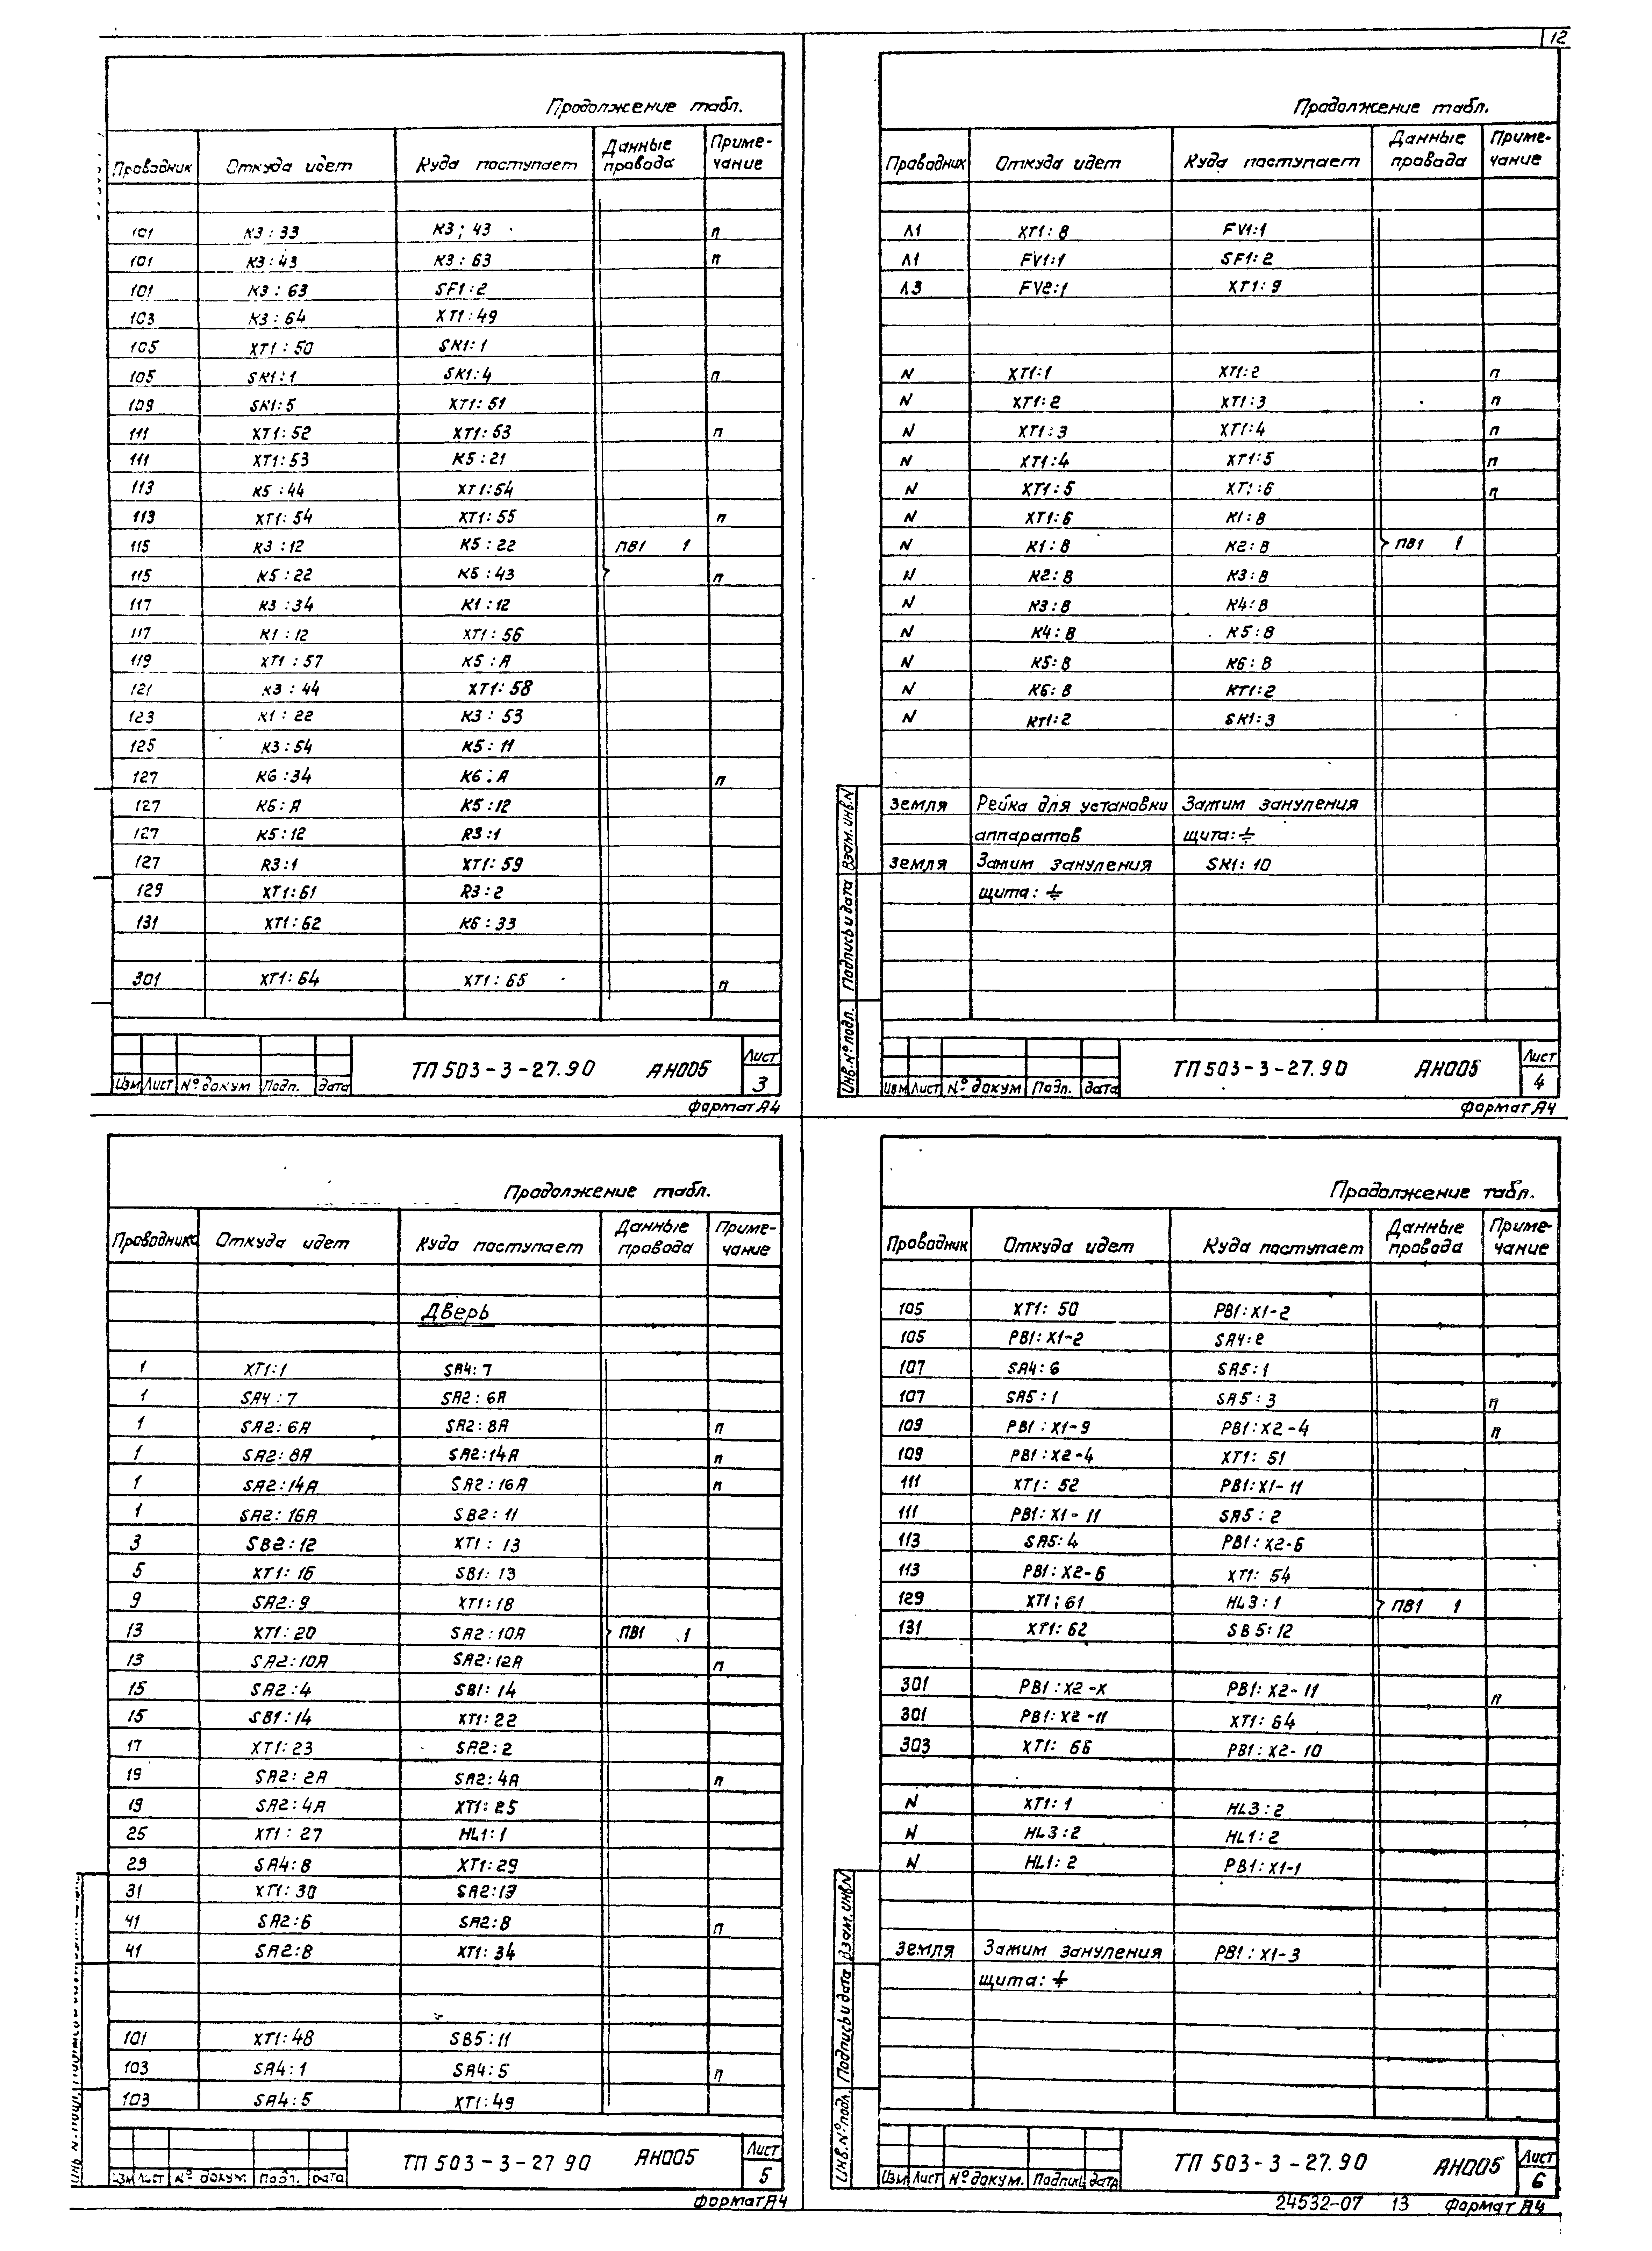 12
Продолжение табл.
Проводник Откуда идет Куда поступает Данные провода Приме-чание
101 К3:33 К3:43 п
101 К3:43 К3:63 п
101 К3:63 SF1:2
103 К3:64 ХТ1:49
105 ХТ1:50 SK1:1
105 SK1:1 SK1:4 п
109 SK1:5 ХТ1:51
111 ХТ1:52 ХТ1:53 п
111 ХТ1:53 К5:21
113 К5:44 ХТ1:54
113 ХТ1:54 ХТ1:55 п
115 К3:12 К5:22 ПВ1 1
115 К5:22 К5:43 п
117 К3:34 К1:12
117 К1:12 ХТ1:56
119 ХТ1:57 К5:А
121 К3:44 ХТ1:58
123 К1:22 К3:53
125 К3:54 К5:11
127 К6:34 К6:А п
127 К6:А К5:12
127 К5:12 R3:1
127 R3:1 ХТ1:59
129 ХТ1:61 R3:2
131 ХТ1:62 К6:33
301 ХТ1:64 ХТ1:65 п
Изм Лист № докум Подп. дата ТП 503-3-27.90 АН005 Лист 3
Формат А4
Продолжение табл.
Проводник Откуда идет Куда поступает Данные провода Приме-чание
Л1 ХТ1:8 FV1:1
Л1 FV1:1 SF1:2
Л3 FV2:1 ХТ1:9
N ХТ1:1 ХТ1:2 п
N ХТ1:2 ХТ1:3 п
N ХТ1:3 ХТ1:4 п
N ХТ1:4 ХТ1:5 п
N ХТ1:5 ХТ1:6 п
N ХТ1:6 К1:В
N К1:В К2:В ПВ1 1
N К2:В К3:В
N К3:В К4:В
N К4:В К5:В
N К5:В К6:В
N К6:В КТ1:2
N КТ1:2 SK1:3
земля Рейка для установки Зажим зануления
аппаратов щита:⏚
земля Зажим зануления SK1:10
щита:⏚
Инв.№ подл. Подпись и дата Взам.инв.N
Изм Лист № докум Подп. дата ТП 503-3-27.90 АН005 Лист 4
Формат А4
Продолжение табл.
Проводника Откуда идет Куда поступает Данные провода Приме-чание
Дверь
1 ХТ1:1 SA4:7
1 SA4:7 SA2:6A
1 SA2:6A SA2:8A п
1 SA2:8A SA2:14A п
1 SA2:14A SA2:16A п
1 SA2:16A SB2:11
3 SB2:12 ХТ1:13
5 ХТ1:16 SB1:13
9 SA2:9 ХТ1:18
13 ХТ1:20 SA2:10A ПВ1 1
13 SA2:10A SA2:12A п
15 SA2:4 SB1:14
15 SB1:14 ХТ1:22
17 ХТ1:23 SA2:2
19 SA2:2A SA2:4A п
19 SA2:4A ХТ1:25
25 ХТ1:27 HL1:1
29 SA4:8 ХТ1:29
31 ХТ1:30 SA2:13
41 SA2:6 SA2:8 п
41 SA2:8 ХТ1:34
101 ХТ1:48 SB5:11
103 SA4:1 SA4:5 п
103 SA4:5 ХТ1:49
Изм Лист № докум. Подп. дата ТП 503-3-27 90 АН005 Лист 5
Формат А4
Продолжение табл.
Проводник Откуда идет Куда поступает Данные провода Приме-чание
105 ХТ1:50 PB1:X1-2
105 PB1:X1-2 SA4:2
107 SA4:6 SA5:1
107 SA5:1 SA5:3 п
109 PB1:X1-9 PB1:X2-4 п
109 PB1:X2-4 ХТ1:51
111 ХТ1:52 PB1:X1-11
111 PB1:X1-11 SA5:2
113 SA5:4 PB1:X2-6
113 PB1:X2-6 ХТ1:54
129 ХТ1:61 HL3:1 ПВ1 1
131 ХТ1:62 SB5:12
301 PB1:X2-X PB1:X2-11 п
301 PB1:X2-11 ХТ1:64
303 ХТ1:66 PB1:X2-10
N ХТ1:1 HL3:2
N HL3:2 HL1:2
N HL1:2 PB1:X1-1
земля Зажим зануления PB1:X1-3
щита:⏚
Инв.№ подл. Подпись и дата Взам.инв.N
Изм Лист № докум. Подпись дата ТП 503-3-27.90 АН005 Лист 6
24532-07 13 Формат А4